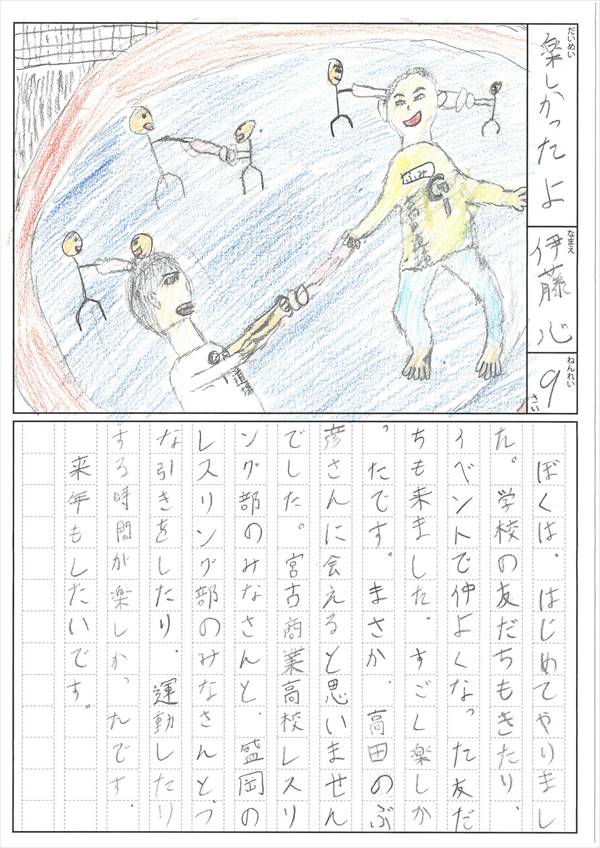 だいめい
楽しかったよ
なまえ
伊藤心
ねんれい
9さい
ぼくは、はじめてやりまし
た。学校の友だちもきたり、
イベントで仲よくなった友だ
ちも来ました。すごく楽しか
ったです。まさか、高田のぶ
彦さんに会えると思いません
でした。宮古商業高校レスリ
ング部のみなさんと、盛岡の
レスリング部のみなさんとつ
な引きをしたり、運動したり
する時間が楽しかったです。
来年もしたいです。